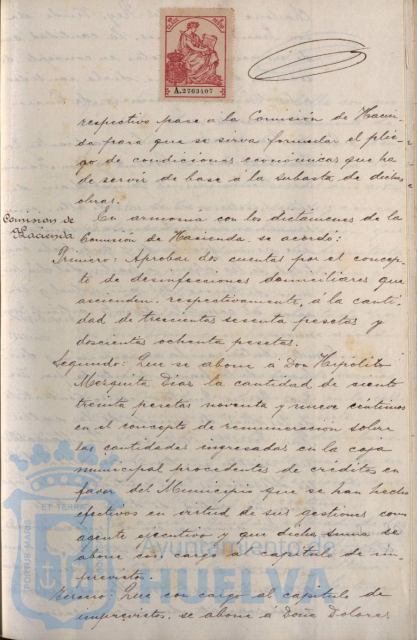 A.2763407
respectivo pase á la Comisión de Hacien-
da para que se sirva formular el plie-
go de condiciones económicas que ha
de servir de base á la subasta de dichas
obras.
Comision de
Hacienda
En armonía con los dictámenes de la
Comisión de Hacienda se acordó:
Primero: Aprobar dos cuentas por el concep-
to de desinfecciones domiciliares que
ascienden respectivamente, á la canti-
dad de trescientas sesenta pesetas y
doscientas ochenta pesetas.
Segundo: Que se abone á Don Hipólito
Mezquita Días la cantidad de ciento
treinta pesetas noventa y nueve céntimos
en el concepto de remuneración sobre
las cantidades ingresadas en la caja
municipal procedentes de créditos en
favor del Municipio que se han hecho
efectivos en virtud de sus gestiones como
agente ejecutivo y que dicha suma se
abone con cargo al capítulo de im-
previstos.
Tercero: Que con cargo al capítulo de
imprevistos, se abone á Doña Dolores
Ayuntamiento de
HUELVA
PORTUS MARIS
ET TERRÆ